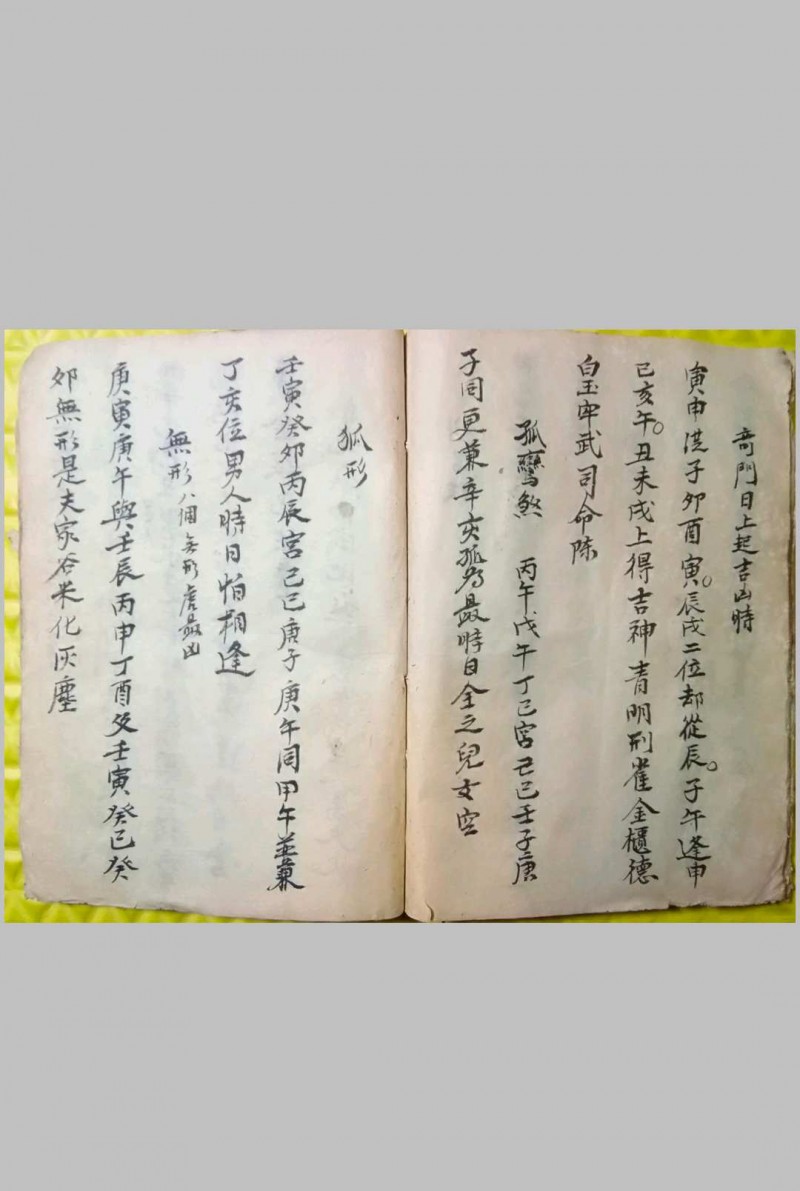 奇門日上起吉凶時
寅申洪子卯酉寅。辰戌二位却從辰。子午逢申
巳亥午。丑未戌上得吉神青明刑雀金櫃德
白玉牢武司命陈
孤鸞煞 丙午戊午丁巳宮己巳壬子庚
子同更兼辛亥孤為最時日全之兒女空
狐形
壬寅癸卯丙辰宮己巳庚子庚午同甲午並兼
丁亥位男人時日怕相逢
無形 八個無形虛最凶
庚寅庚午與壬辰丙申丁酉及壬寅癸巳癸
卯無形是夫家谷米化灰塵